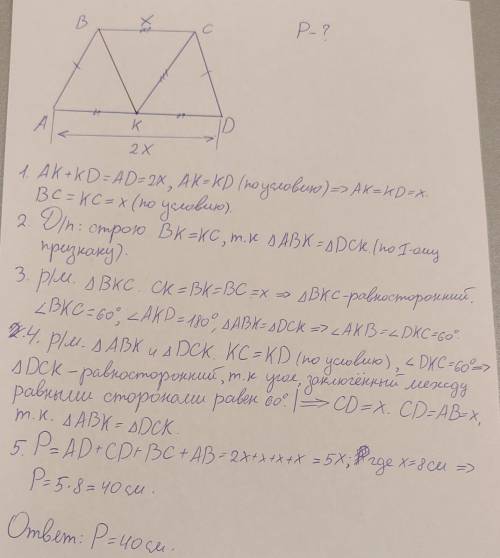 B x C P-?
A K D
2x
1. AK+KD=AD=2x, AK=KD (по условию) => AK=KD=x.
BC=KC=x (по условию).
2. Д/п: строю BK=KC, т.к ΔABK=ΔDCK (по I-ому
признаку).
3. р/м. ΔBKC. CK=BK=BC=x => ΔBKC-равносторонний.
∠BKC=60°, ∠AKD=180°, ΔABK=ΔDCK => ∠AKB=∠DKC=60°
4. р/м. ΔABK и ΔDCK. KC=KD (по условию), ∠DKC=60° =>
ΔDCK-равносторонний, т.к угол, заключённый между
равными сторонами равен 60°. | => CD=x. CD=AB=x,
т.к. ΔABK=ΔDCK.
5. P=AD+CD+BC+AB=2x+x+x+x=5x; где x=8см =>
P=5·8=40см.
Ответ: P=40см.